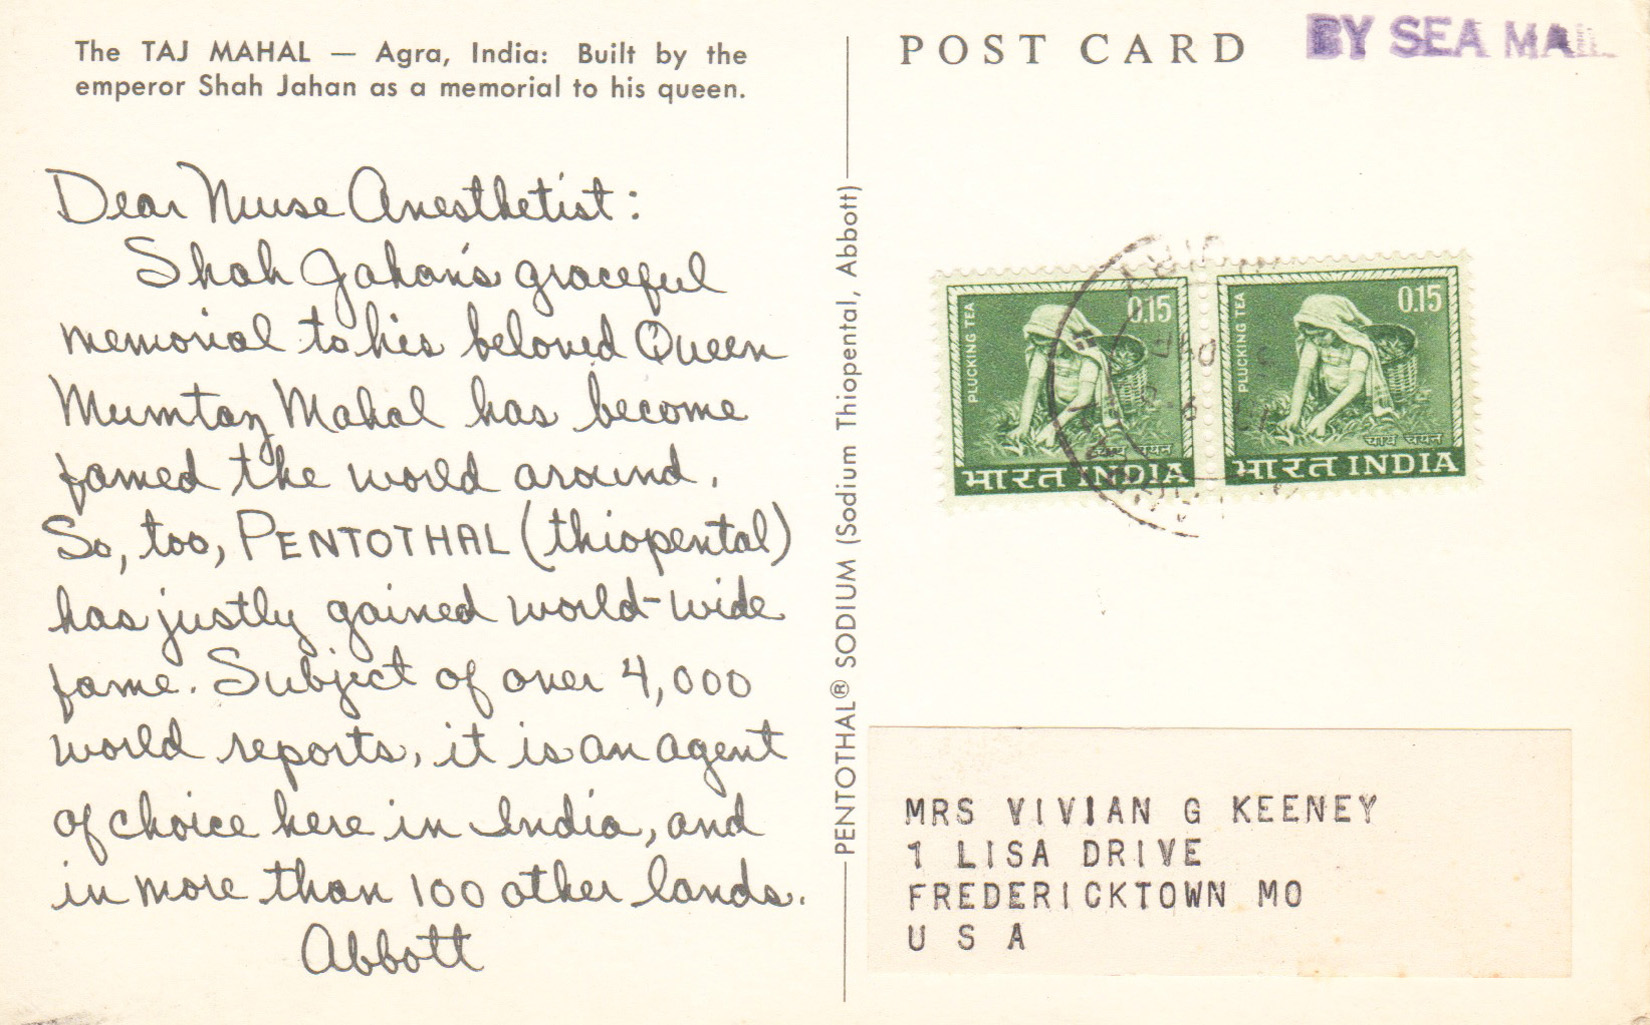 The TAJ MAHAL — Agra, India: Built by the
emperor Shah Jahan as a memorial to his queen.
Dear Nurse Anesthetist:
Shah Jahan's graceful
memorial to his beloved Queen
Mumtaz Mahal has become
famed the world around.
So, too, PENTOTHAL (thiopental)
has justly gained world-wide
fame. Subject of over 4,000
world reports, it is an agent
of choice here in India, and
in more than 100 other lands.
Abbott
PENTOTHAL® SODIUM (Sodium Thiopental, Abbott)
POST CARD
BY SEA MAIL
PLUCKING TEA
0.15
चाय चयन
भारत INDIA
PLUCKING TEA
0.15
चाय चयन
भारत INDIA
MRS VIVIAN G KEENEY
1 LISA DRIVE
FREDERICKTOWN MO
U S A